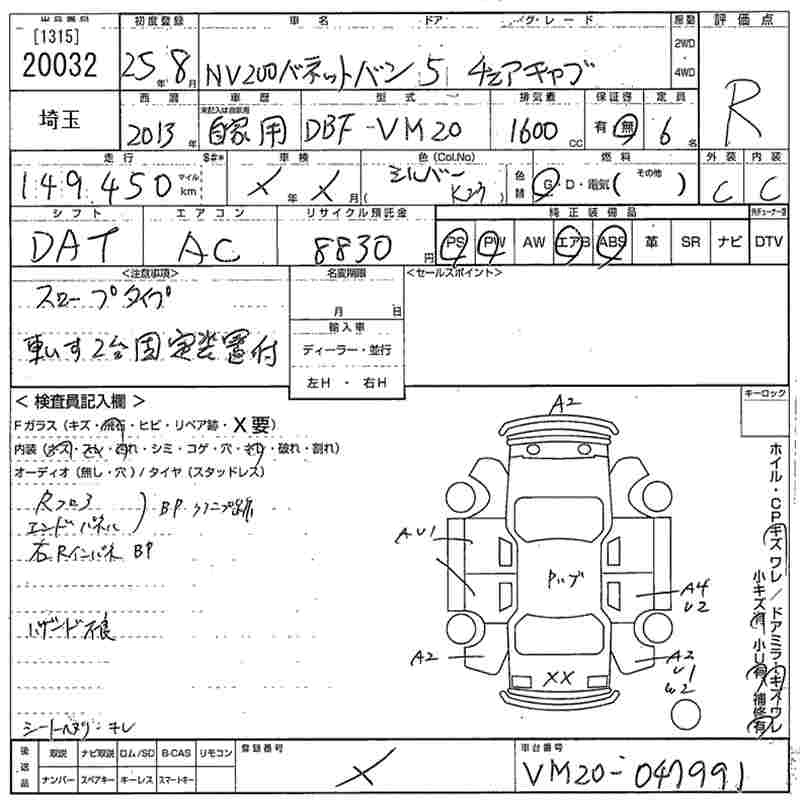 [1315]
20032
初度登録
車名
ドア
グレード
原動
評価点
25年8月
NV200バネットバン 5 チェアキャブ
2WD
4WD
R
埼玉
西暦
車歴
型式
排気量
保証書
定員
2013年
自家用
DBF-VM20
1600cc
有・無
6名
走行
車検
色(Col.No)
色替
燃料
その他
外装
内装
149,450
マイル
km
X年X月
シルバー
G・D・電気( )
C
C
シフト
エアコン
リサイクル預託金
純正装備品
DAT
AC
8830円
PS PW AW エアB ABS 革 SR ナビ DTV
<注意事項>
名変期限
<セールスポイント>
スロープタイプ
月 日
車いす2台固定装置付
輸入車
ディーラー・並行
左H・右H
<検査員記入欄>
キーロック
Fガラス(キズ・飛石・ヒビ・リペア跡・X要)
オーディオ(無し・穴)/タイヤ(スタッドレス)
Rフロア
エンドパネル
BP クランプ跡
右Rインパネ BP
ハザード不良
A2
AU1
A4
U2
A2
XX
A2
U1
U2
ホイル・CPキズ ワレ/ドアミラーキズ ワレ
小キズ有 小U有 補修有
後送品
取説 ナビ取説 ロム/SD B-CAS リモコン
ナンバー スペアキー キーレス スマートキー
登録番号
X
車台番号
VM20-047991